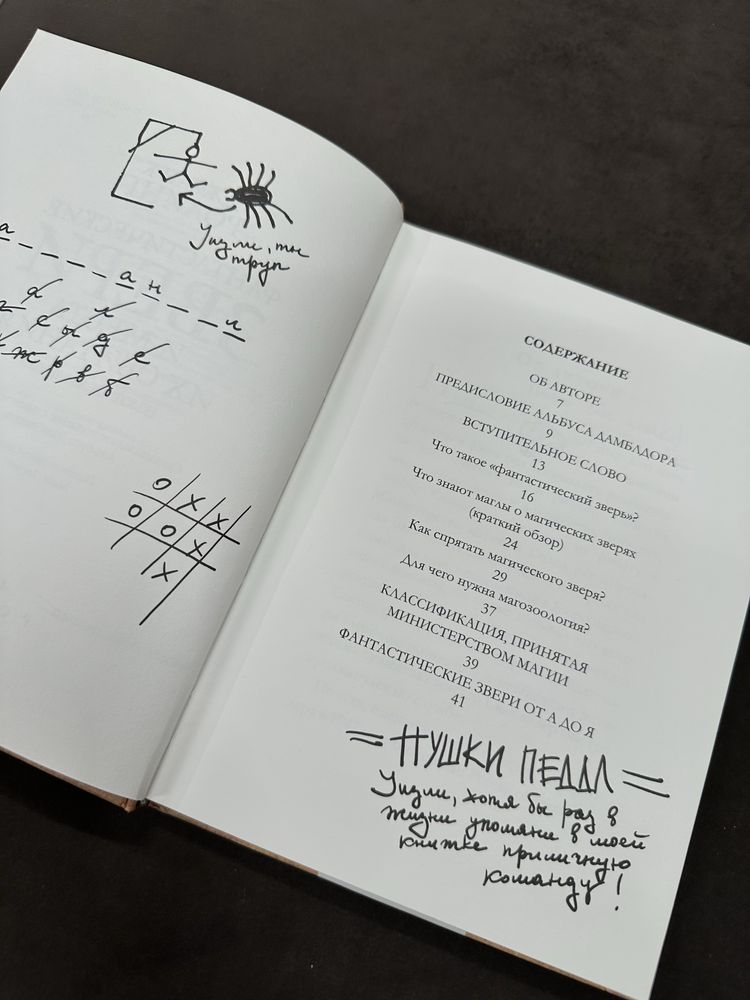 Уизли, ты
труп
а _ _ _ _ а н _ _ л
ы д е
ж р в б
О Х Х
О О Х
Х
СОДЕРЖАНИЕ
ОБ АВТОРЕ
7
ПРЕДИСЛОВИЕ АЛЬБУСА ДАМБЛДОРА
9
ВСТУПИТЕЛЬНОЕ СЛОВО
13
Что такое «фантастический зверь»?
16
Что знают маглы о магических зверях
(краткий обзор)
24
Как спрятать магического зверя?
29
Для чего нужна магозоология?
37
КЛАССИФИКАЦИЯ, ПРИНЯТАЯ
МИНИСТЕРСТВОМ МАГИИ
39
ФАНТАСТИЧЕСКИЕ ЗВЕРИ ОТ А ДО Я
41
= ПУШКИ ПЕДДЛ =
Уизли, хотя бы раз в
жизни упомяни в моей
книжке приличную
команду!